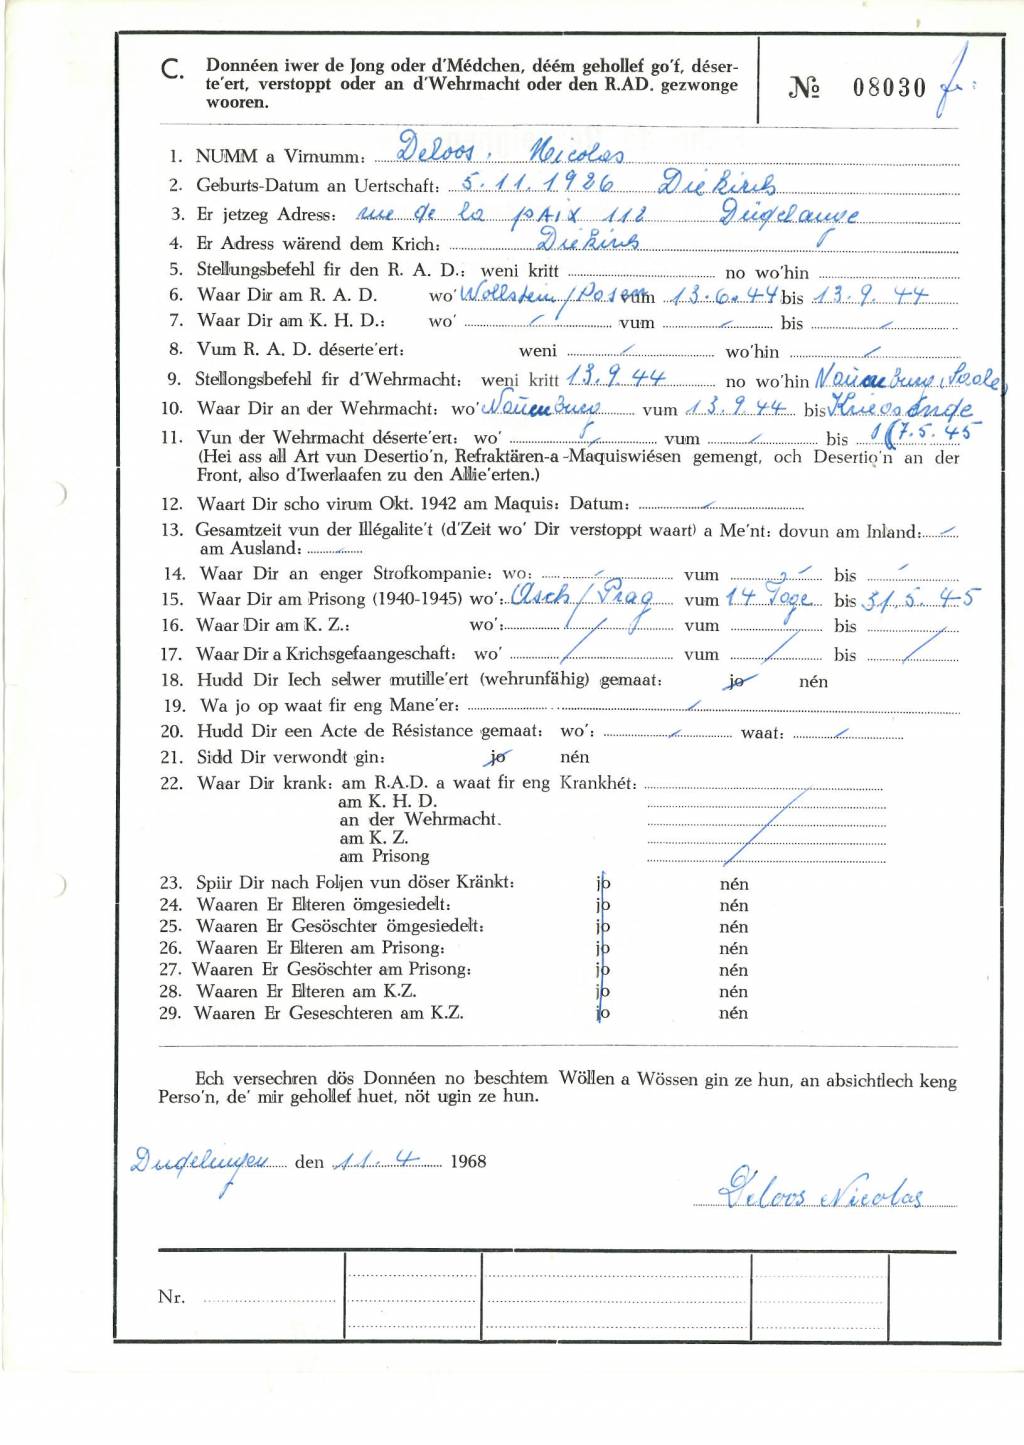 C. Donnéen iwer de Jong oder d'Médchen, déém gehollef go'f, déser-
te'ert, verstoppt oder an d'Wehrmacht oder den R.AD. gezwonge
wooren.
№ 08030
1. NUMM a Virnumm: Deloos. Nicolas
2. Geburts-Datum an Uertschaft: 5.11.1926 Diekirch
3. Er jetzeg Adress: rue de la pAix 112 Dudelange
4. Er Adress wärend dem Krich: Diekirch
5. Stellungsbefehl fir den R. A. D.: weni kritt no wo'hin
6. Waar Dir am R. A. D. wo' Wollstein/Posen vum 13.6.44 bis 13.9.44
7. Waar Dir am K. H. D.: wo' / vum / bis /
8. Vum R. A. D. déserte'ert: weni / wo'hin /
9. Stellongsbefehl fir d'Wehrmacht: weni kritt 13.9.44 no wo'hin Nauenburg (Saale)
10. Waar Dir an der Wehrmacht: wo' Nauenburg vum 13.9.44 bis Kriegsende
11. Vun der Wehrmacht déserte'ert: wo' / vum / bis 17.5.45
(Hei ass all Art vun Desertio'n, Refraktären-a-Maquiswiésen gemengt, och Desertio'n an der
Front, also d'Iwerlaafen zu den Allie'erten.)
12. Waart Dir scho virum Okt. 1942 am Maquis: Datum: /
13. Gesamtzeit vun der Illégalite't (d'Zeit wo' Dir verstoppt waart) a Me'nt: dovun am Inland: /
am Ausland: /
14. Waar Dir an enger Strofkompanie: wo: / vum / bis /
15. Waar Dir am Prisong (1940-1945) wo': Asch/Prag vum 14 Tage bis 31.5.45
16. Waar Dir am K. Z.: wo': / vum / bis /
17. Waar Dir a Krichsgefaangeschaft: wo' / vum / bis /
18. Hudd Dir Iech selwer mutille'ert (wehrunfähig) gemaat: jo nén
19. Wa jo op waat fir eng Mane'er: /
20. Hudd Dir een Acte de Résistance gemaat: wo': / waat: /
21. Sidd Dir verwondt gin: jo nén
22. Waar Dir krank: am R.A.D. a waat fir eng Krankhét:
am K. H. D.
an der Wehrmacht.
am K. Z.
am Prisong
23. Spiir Dir nach Foljen vun döser Kränkt: jo nén
24. Waaren Er Elteren ömgesiedelt: jo nén
25. Waaren Er Gesöschter ömgesiedelt: jo nén
26. Waaren Er Elteren am Prisong: jo nén
27. Waaren Er Gesöschter am Prisong: jo nén
28. Waaren Er Elteren am K.Z. jo nén
29. Waaren Er Geseschteren am K.Z. jo nén
Ech versechren dös Donnéen no beschtem Wöllen a Wössen gin ze hun, an absichtlech keng
Perso'n, de' mir gehollef huet, nöt ugin ze hun.
Dudelingen den 11.4 1968
Deloos Nicolas
Nr.